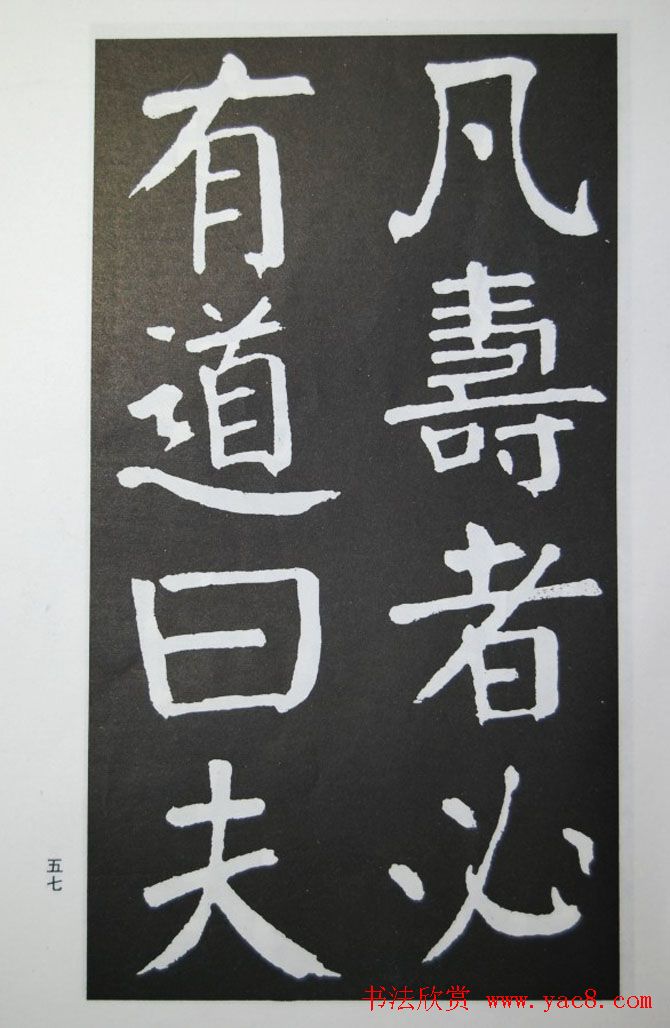 凡壽者必
有道曰夫
五七
书法欣赏 www.yac8.com